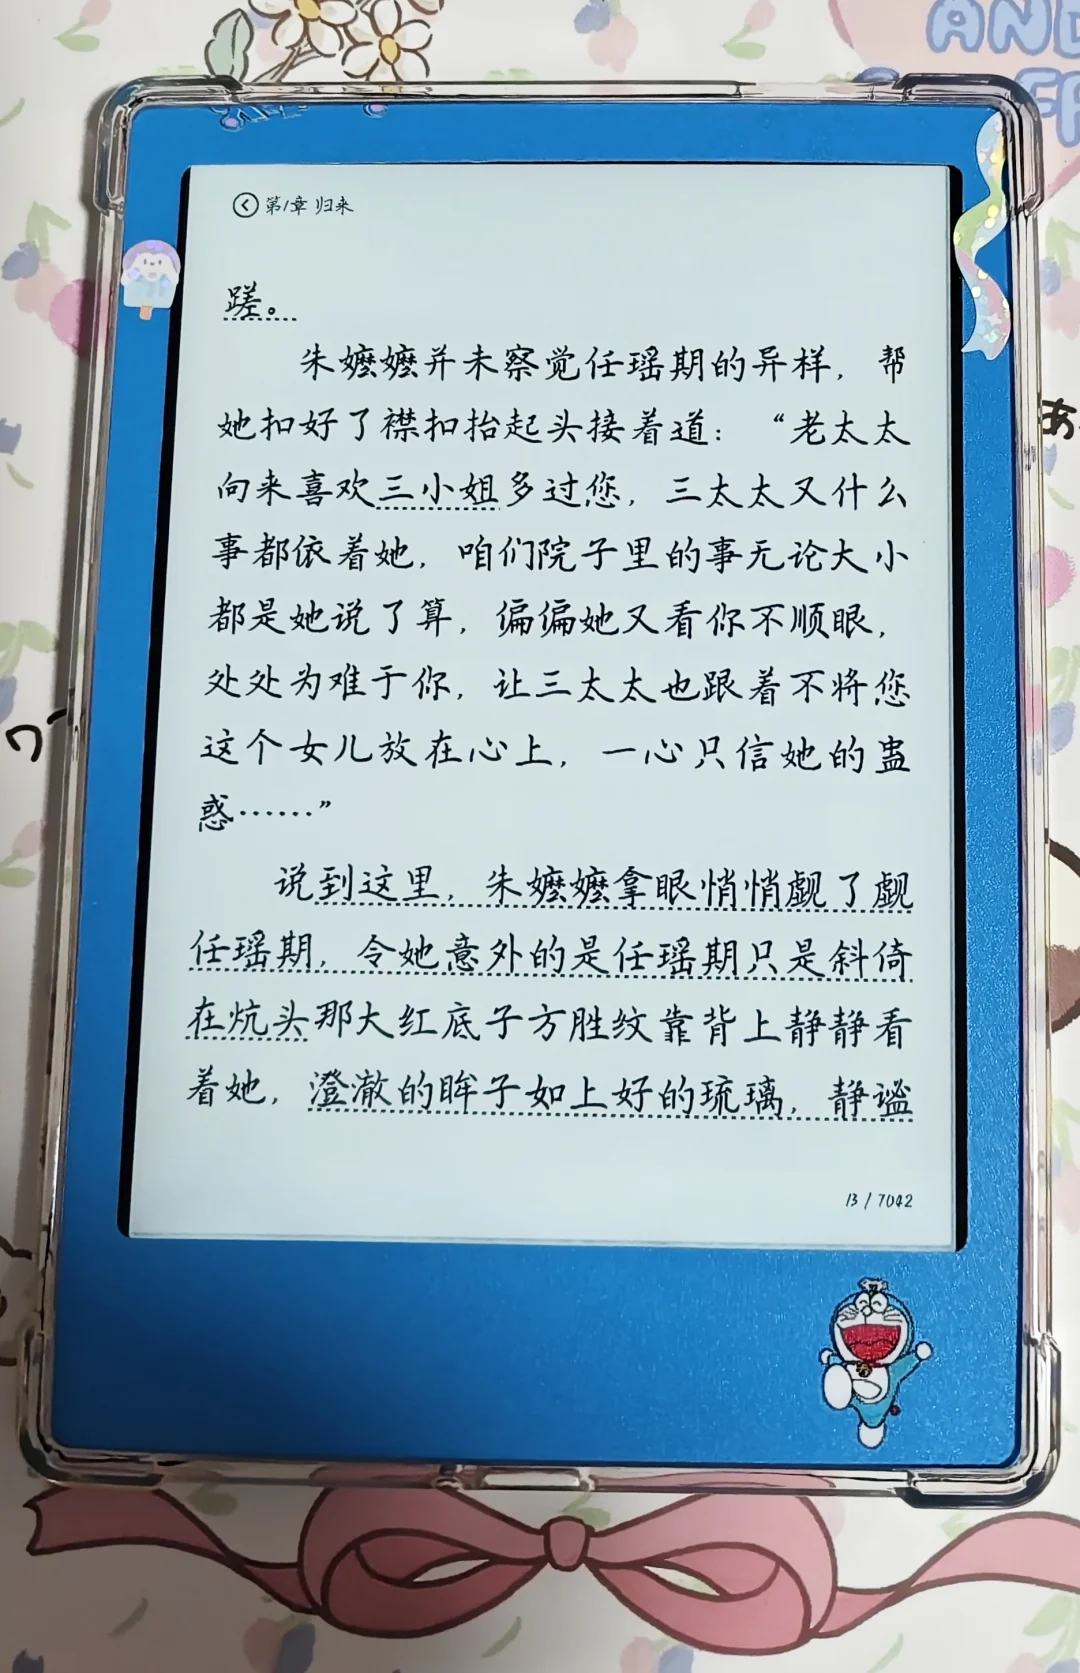 AND
第1章 归来
蹉。
朱嬷嬷并未察觉任瑶期的异样，帮
她扣好了襟扣抬起头接着道：“老太太
向来喜欢三小姐多过您，三太太又什么
事都依着她，咱们院子里的事无论大小
都是她说了算，偏偏她又看你不顺眼，
处处为难于你，让三太太也跟着不将您
这个女儿放在心上，一心只信她的蛊
惑……”
说到这里，朱嬷嬷拿眼悄悄觑了觑
任瑶期，令她意外的是任瑶期只是斜倚
在炕头那大红底子方胜纹靠背上静静看
着她，澄澈的眸子如上好的琉璃，静谧
13 / 7042
あ